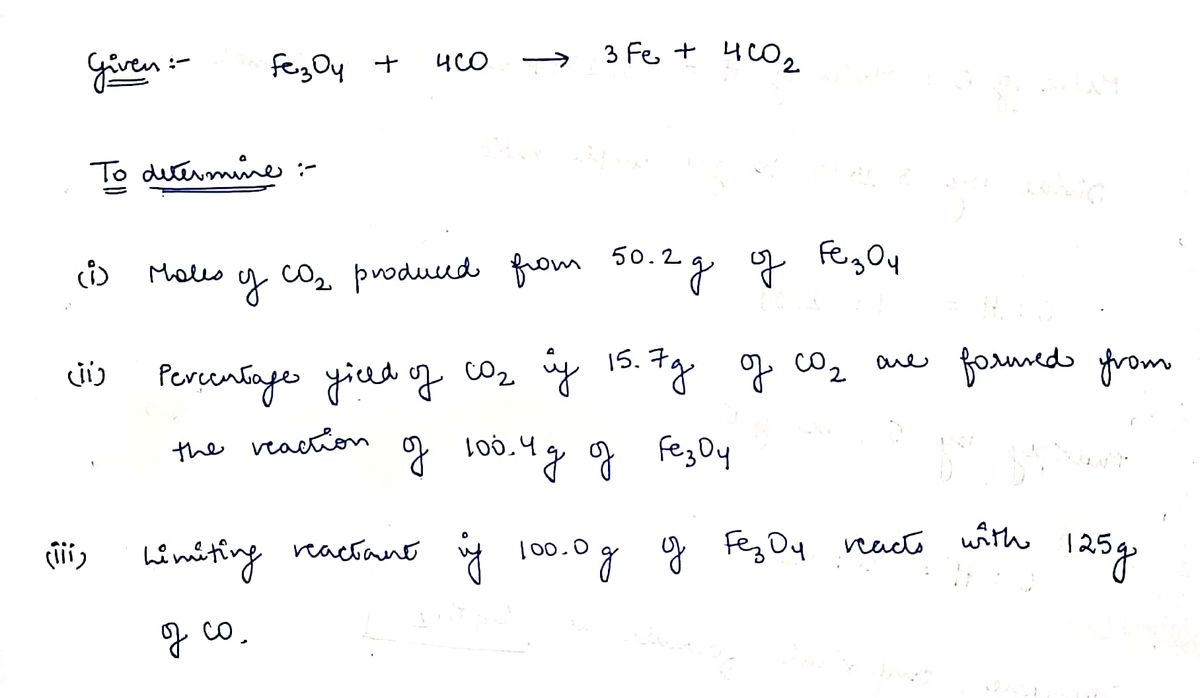 Given :- Fe₃O₄ + 4CO → 3 Fe + 4CO₂
To determine :-
(i) Moles of CO₂ produced from 50.2 g of Fe₃O₄
(ii) Percentage yield of CO₂ if 15.7g of CO₂ are formed from
the reaction of 100.4 g of Fe₃O₄
(iii) Limiting reactant if 100.0 g of Fe₃O₄ reacts with 125g
of CO.